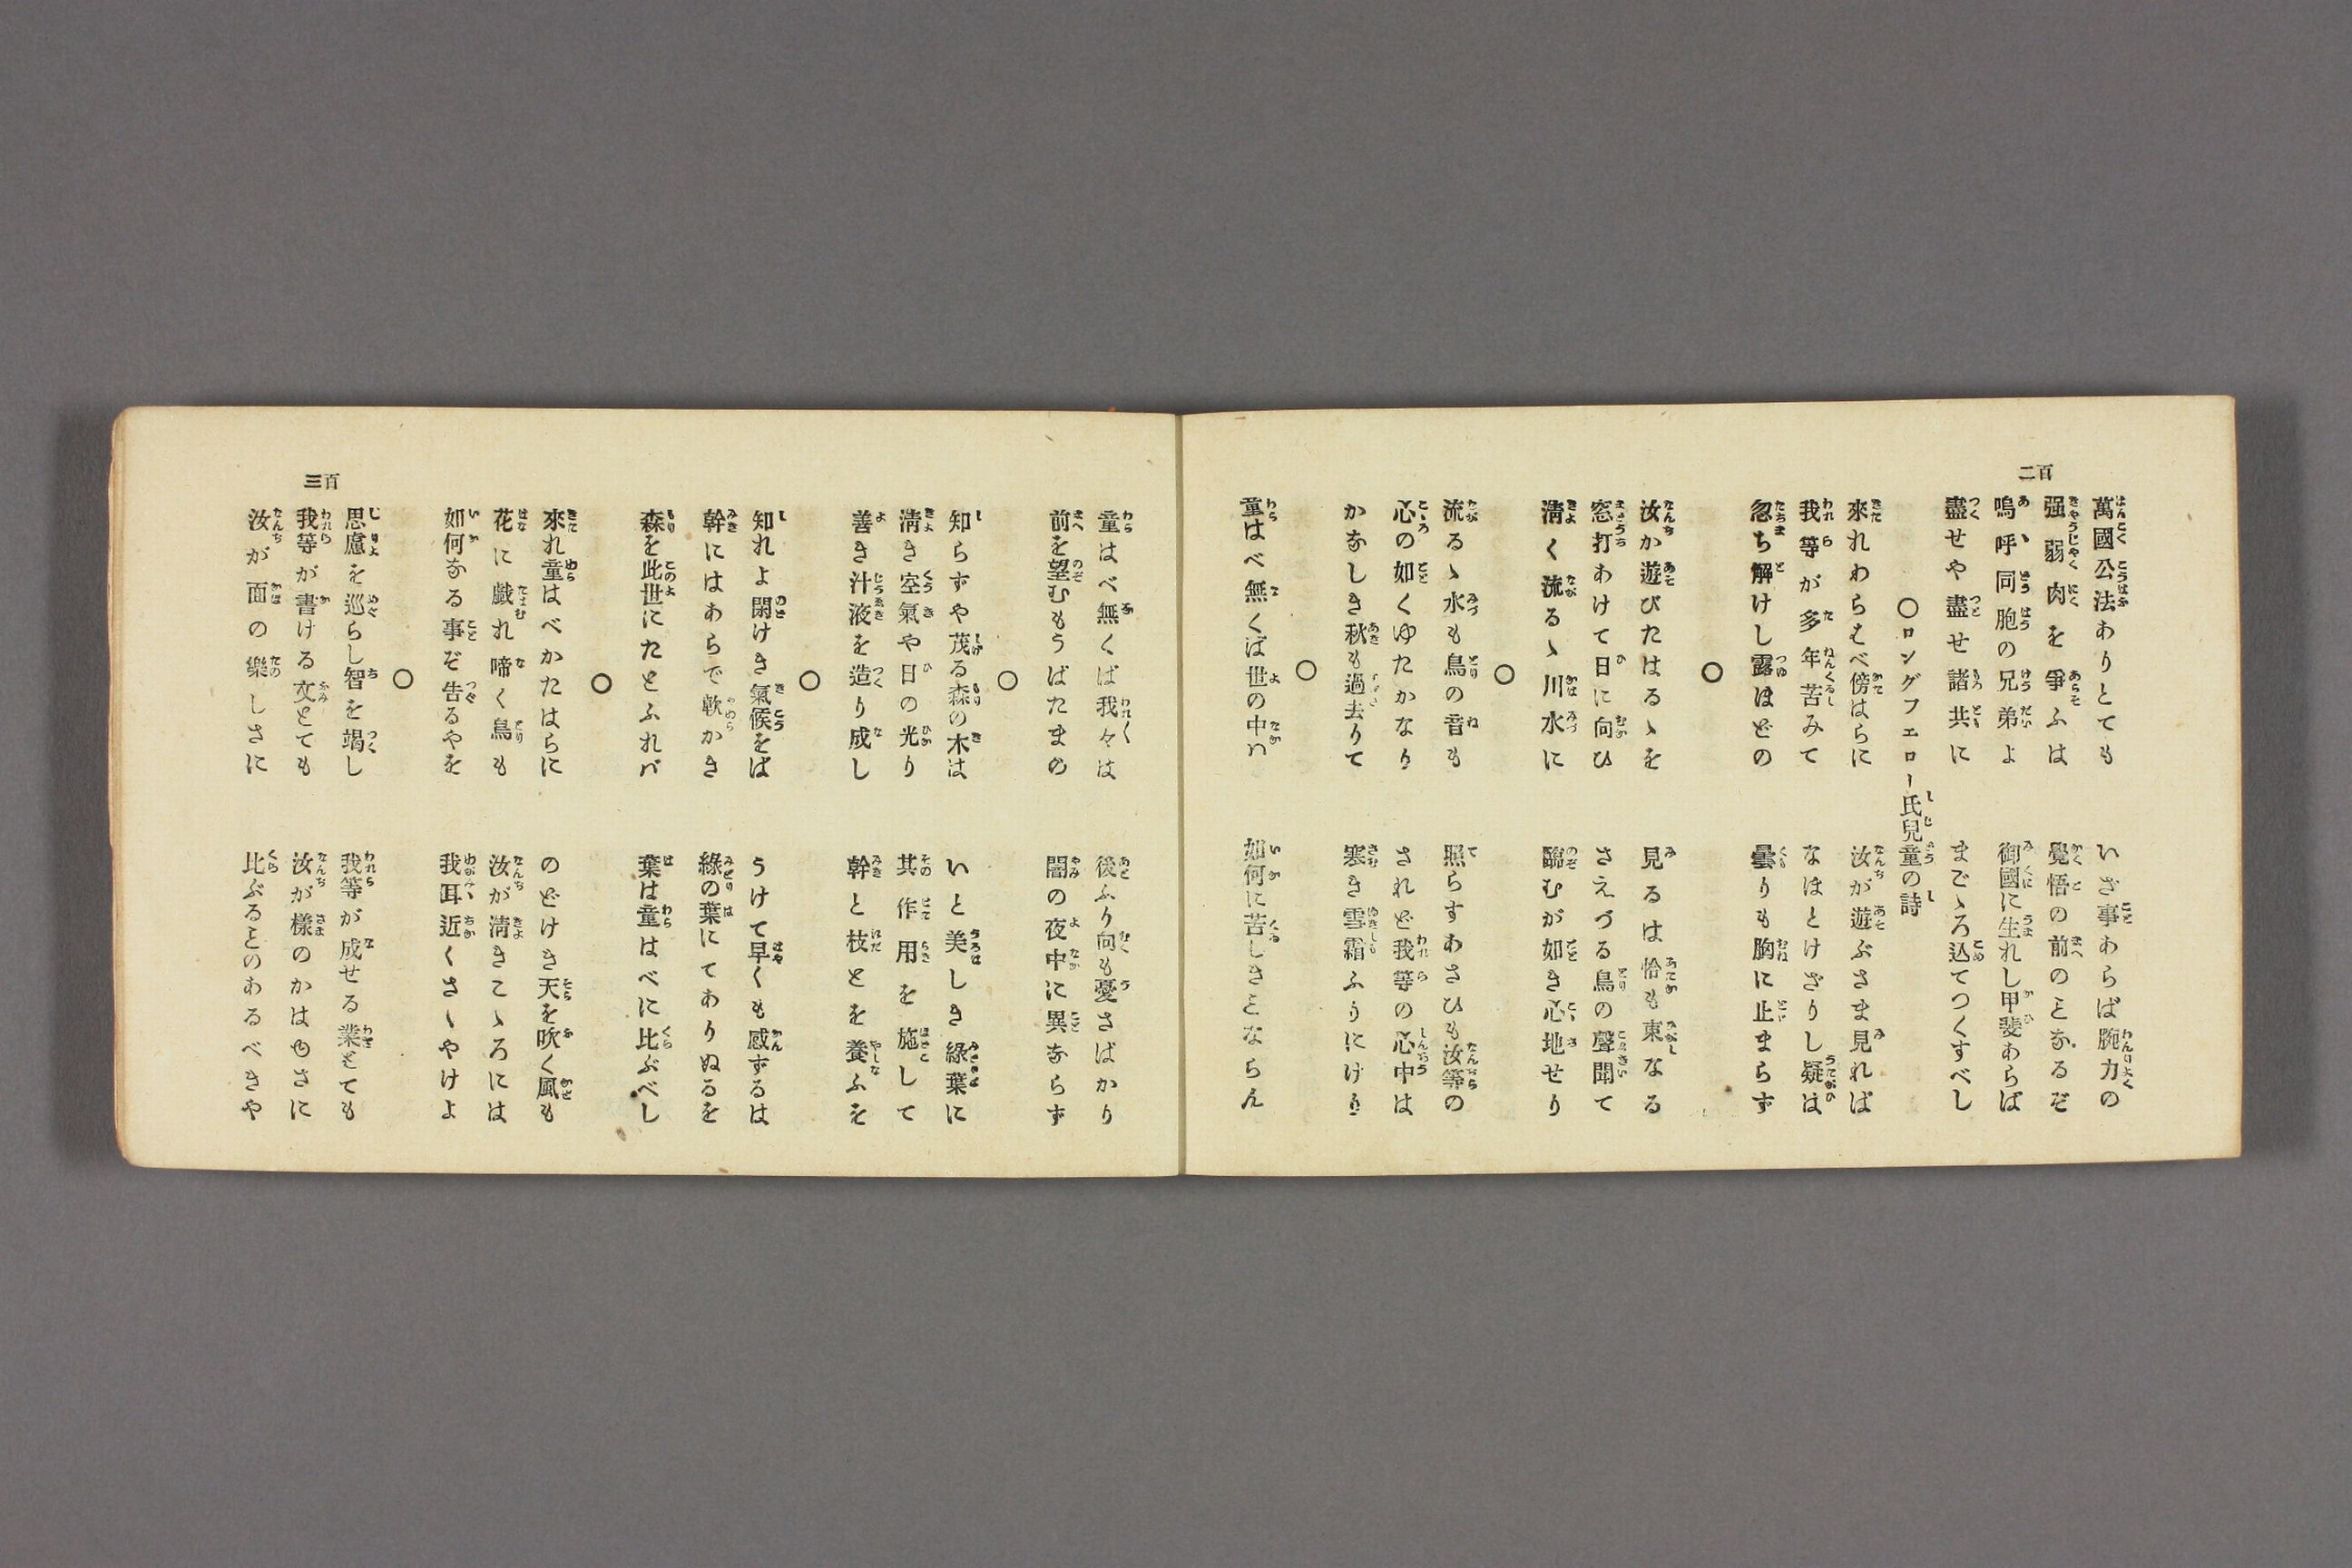 百二
萬國公法ありとても いざ事あらば腕力の
强弱肉を爭ふは 覺悟の前のとなるぞ
嗚呼同胞の兄弟よ 御國に生れし甲斐あらば
盡せや盡せ諸共に まごゝろ込てつくすべし
○ロングフエロー氏兒童の詩
來れわらはべ傍はらに 汝が遊ぶさま見れば
我等が多年苦みて なほとけざりし疑は
忽ち解けし露ほどの 曇りも胸に止まらず
○
汝か遊びたはるゝを 見るは恰も東なる
窓打あけて日に向ひ さえづる鳥の聲聞て
淸く流るゝ川水に 臨むが如き心地せり
○
流るゝ水も鳥の音も 照らすあさひも汝等の
心の如くゆたかなり されど我等の心中は
かなしき秋も過去りて 寒き雪霜ふりにけり
○
童はべ無くば世の中ハ 如何に苦しきとならん
童はべ無くば我々は 後ふり向も憂さばかり
前を望むもうばたまの 闇の夜中に異ならず
○
知らずや茂る森の木は いと美しき綠葉に
淸き空氣や日の光り 其作用を施して
善き汁液を造り成し 幹と枝とを養ふを
○
知れよ閑けき氣候をば うけて早くも感ずるは
幹にはあらで軟かき 綠の葉にてありぬるを
森を此世にたとふれバ 葉は童はべに比ぶべし
○
來れ童はべかたはらに のどけき天を吹く風も
花に戯れ啼く鳥も 汝が淸きこゝろには
如何なる事ぞ告るやを 我耳近くさゝやけよ
○
思慮を巡らし智を竭し 我等が成せる業とても
我等が書ける文とても 汝が樣のかはゆさに
汝が面の樂しさに 比ぶるとのあるべきや
百三